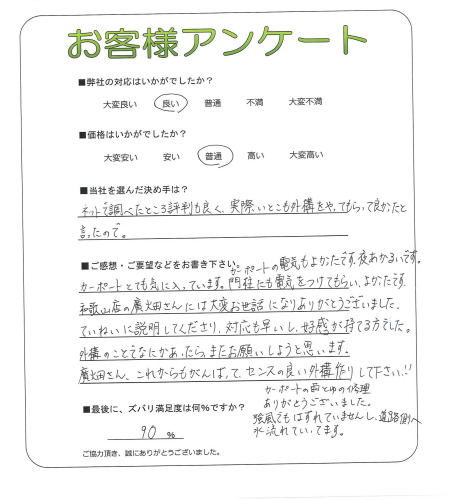 お客様アンケート
■弊社の対応はいかがでしたか？
大変良い 良い 普通 不満 大変不満
■価格はいかがでしたか？
大変安い 安い 普通 高い 大変高い
■当社を選んだ決め手は？
ネットで調べたところ評判も良く、実際いとこも外構をやってもらって良かったと
言ったので。
■ご感想・ご要望などをお書き下さい。
カーポートの電気もよかったです。夜あかるいです。
カーポートとても気に入っています。門柱にも電気をつけてもらい、よかったです。
和歌山店の廣畑さんには大変お世話になりありがとうございました。
ていねいに説明してくださり、対応も早いし、好感が持てる方でした。
外構のことでなにかあったら、またお願いしようと思います。
廣畑さん、これからもがんばって、センスの良い外構作りして下さい!!
カーポートの雨とゆの修理
ありがとうございました。
強風でもはずれていませんし、道路側へ
水流れていってます。
■最後に、ズバリ満足度は何%ですか？
90 %
ご協力頂き、誠にありがとうございました。